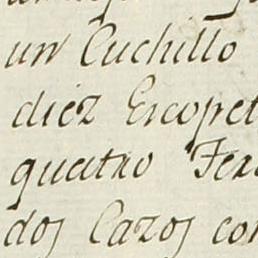 un Cuchillo
diez Escopet
quatro Fer
dos Cazos con